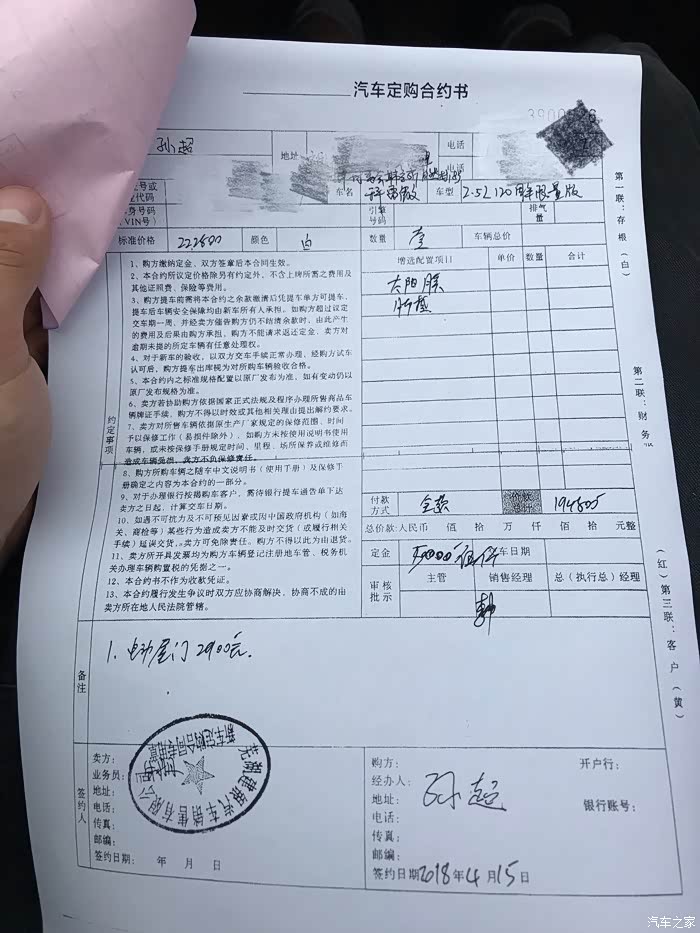 汽车定购合约书
孙超
地址
电话
电话
车名
车型 2.5L 120周年限量版
引擎号码
排气量
标准价格 222500 颜色 白 数量 车辆总价
第一联：存根（白）
第二联：财务
（红）第三联：客户（黄）
约定事项
1、购方缴纳定金、双方签章后本合同生效。
2、本合约所议定价格除另有约定外，不含上牌所需之费用及
其他证照费、保险等费用。
3、购方提车前需将本合约之余款缴清后凭提车单方可提车，
提车后车辆安全保障均由新车所有人承担。如购方超过议定
交车期一周，并经卖方催告购方仍不结清余款时，由此产生
的费用及后果由购方承担，购方不能请求返还定金，卖方对
逾期未提的所定车辆有任意处理权。
4、对于新车的验收，以双方交车手续正常办理，经购方试车
认可后，购方提车出库视为对所购车辆验收合格。
5、本合约内之标准规格配置以原厂发布为准，如有变动仍以
原厂发布规格为准。
6、卖方若协助购方依据国家正式法规及程序办理所售商品车
辆牌证手续，购方不得以时效或其他相关理由提出解约要求。
7、卖方对所售车辆依据原生产厂家规定的保修范围、时间
予以保修工作（易损件除外），如购方未按使用说明书使用
车辆，或未按保修手册规定时间、里程、场所保养或维修而
造成车辆受损，卖方不负保修责任。
8、购方所购车辆之随车中文说明书（使用手册）及保修手
册确定之内容为本合约的一部分。
9、对于办理银行按揭购车客户，需待银行提车通告单下达
卖方之日起，计算交车日期。
10、如遇不可抗力及不可预见因素或因中国政府机构（如海
关、商检等）某些行为造成卖方不能及时交货（或履行相关
手续）延误交货，卖方可免除责任。购方不得以此为由退货。
11、卖方所开具发票均为购方车辆登记注册地车管、税务机
关办理车辆购置税的凭据之一。
12、本合约书不作为收款凭证。
13、本合约履行发生争议时双方应协商解决、协商不成的由
卖方所在地人民法院管辖。
增选配置项目 单价 数量 合计
太阳膜
脚垫
付款方式 全款 194805
总价款：人民币 佰 拾 万 仟 佰 拾 元整
定金 车日期
审核批示 主管 销售经理 总（执行总）经理
备注
1. 电动尾门2900元.
签约人
卖方：
业务员：
地址：
电话：
传真：
邮编：
签约日期： 年 月 日
芜湖建源汽车销售有限公司
新车定购合同专用章
购方： 开户行：
经办人： 孙超
地址： 银行账号：
电话：
传真：
邮编：
签约日期 2018年4月15日
汽车之家